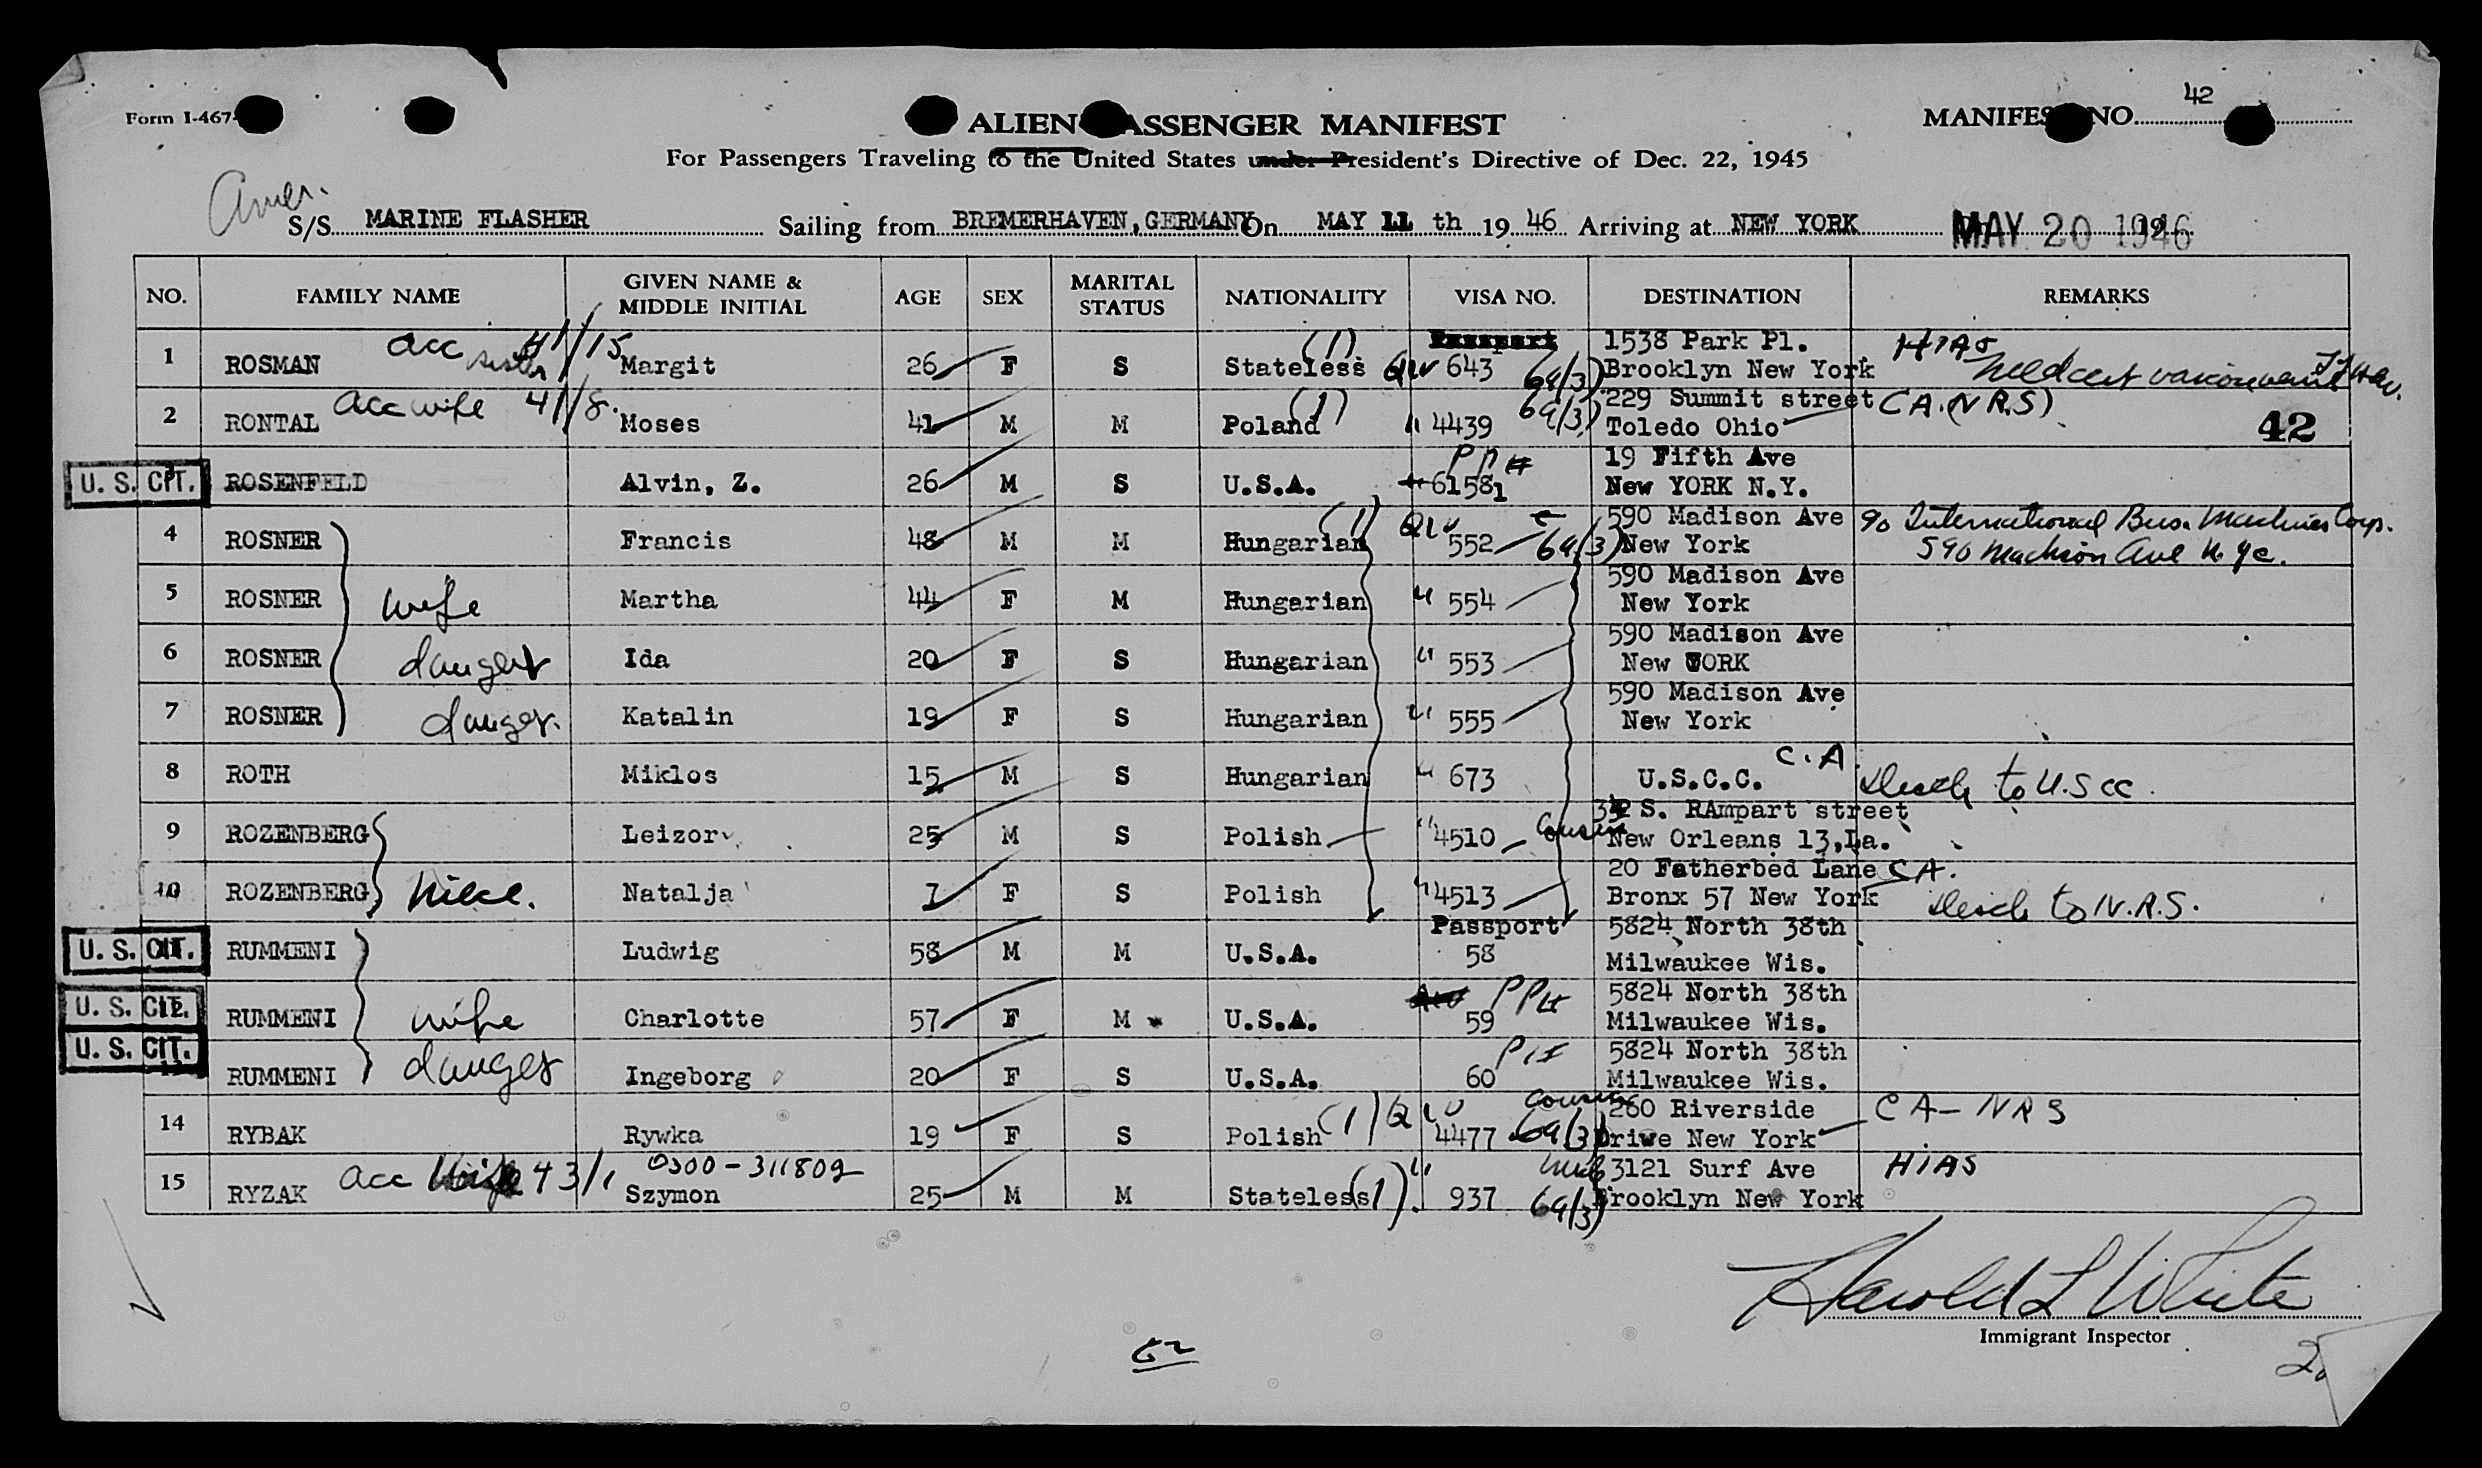 Form I-467
ALIEN PASSENGER MANIFEST
MANIFEST NO. 42
For Passengers Traveling to the United States under President's Directive of Dec. 22, 1945
Amer.
S/S MARINE FLASHER Sailing from BREMERHAVEN, GERMANY On MAY 11 th 19 46 Arriving at NEW YORK MAY 20 1946
NO. FAMILY NAME GIVEN NAME & MIDDLE INITIAL AGE SEX MARITAL STATUS NATIONALITY VISA NO. DESTINATION REMARKS
1 ROSMAN acc sister 41/15 Margit 26 F S Stateless (1) QIV 643 6a(3) 1538 Park Pl. HIAS
Brooklyn New York
2 RONTAL acc wife 41/8. Moses 41 M M Poland (1) " 4439 6a(3) 229 Summit street CA. (NRS)
Toledo Ohio 42
U. S. CIT. ROSENFELD Alvin, Z. 26 M S U.S.A. 61581 19 Fifth Ave
New YORK N.Y.
4 ROSNER Francis 48 M M Hungarian (1) QIV 552 6a(3) 590 Madison Ave c/o International Bus. Machines Corp.
New York 590 Madison Ave N.Y.C.
5 ROSNER wife Martha 44 F M Hungarian " 554 590 Madison Ave
New York
6 ROSNER daughter Ida 20 F S Hungarian " 553 590 Madison Ave
New YORK
7 ROSNER Katalin 19 F S Hungarian " 555 590 Madison Ave
New York
8 ROTH Miklos 15 M S Hungarian " 673 U.S.C.C. C.A. to U.S.C.C.
9 ROZENBERG Leizor 25 M S Polish " 4510 Cousin S. RAmpart street
New Orleans 13, La.
10 ROZENBERG Niece. Natalja 7 F S Polish " 4513 20 Fatherbed Lane C.A.
Bronx 57 New York to N.R.S.
U. S. CIT. RUMMENI Ludwig 58 M M U.S.A. Passport 58 5824 North 38th
Milwaukee Wis.
U. S. CIT. RUMMENI wife Charlotte 57 F M U.S.A. 59 5824 North 38th
Milwaukee Wis.
U. S. CIT. 13 RUMMENI Ingeborg 20 F S U.S.A. 60 5824 North 38th
Milwaukee Wis.
14 RYBAK Rywka 19 F S Polish (1) QIV 4477 cousin 6a(3) 260 Riverside CA-NRS
Drive New York
15 RYZAK acc 43/1 0300-311802 Szymon 25 M M Stateless (1) " 937 6a(3) 3121 Surf Ave HIAS
Brooklyn New York
Harold L White
Immigrant Inspector